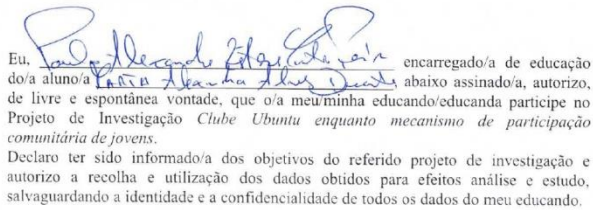 Eu, Alexandre encarregado/a de educação
do/a aluno/a abaixo assinado/a, autorizo,
de livre e espontânea vontade, que o/a meu/minha educando/educanda participe no
Projeto de Investigação Clube Ubuntu enquanto mecanismo de participação
comunitária de jovens.
Declaro ter sido informado/a dos objetivos do referido projeto de investigação e
autorizo a recolha e utilização dos dados obtidos para efeitos análise e estudo,
salvaguardando a identidade e a confidencialidade de todos os dados do meu educando.